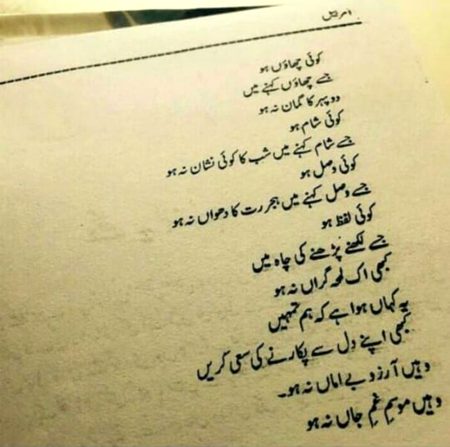 امر بیل
کوئی چھاؤں ہو
جسے چھاؤں کہنے میں
دوپہر کا گمان نہ ہو
کوئی شام ہو
جسے شام کہنے میں شب کا کوئی نشان نہ ہو
کوئی وصل ہو
جسے وصل کہنے میں ہجر رت کا دھواں نہ ہو
کوئی لفظ ہو
جسے لکھنے پڑھنے کی چاہ میں
کبھی اک لمحہ گراں نہ ہو
یہ کہاں ہوا ہے کہ ہم تمہیں
کبھی اپنے دل سے پکارنے کی سعی کریں
وہیں آرزو بے اماں نہ ہو۔
وہیں موسمِ غمِ جاں نہ ہو